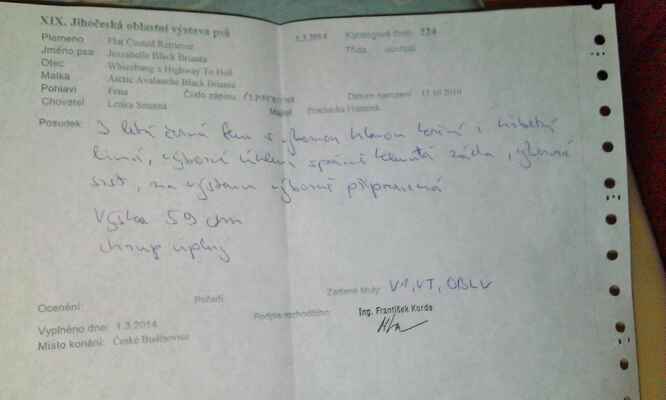 XIX. Jihočeská oblastní výstava psů
Plemeno Flat Coated Retriever 1.3.2014 Katalogové číslo: 224
Jméno psa: Jezzabelle Black Brianta Třída:
Otec Whizzbang's Highway To Hell
Matka Arctic Avalanche Black Brianta
Pohlaví fena Číslo zápisu Datum narození 17.10.2010
Chovatel Lenka Majitel
Posudek: 3 letá černá fena s výbornou hlavou
výborné správně klenutá záda, výborná
srst, na výstavu výborně připravená
Výška 59 cm
chrup úplný
Zadané tituly: V1, VT, OBLV
Ocenění: Pořadí:
Vyplněno dne: 1.3.2014 Podpis rozhodčího: Ing. František Korda
Místo konání: České Budějovice